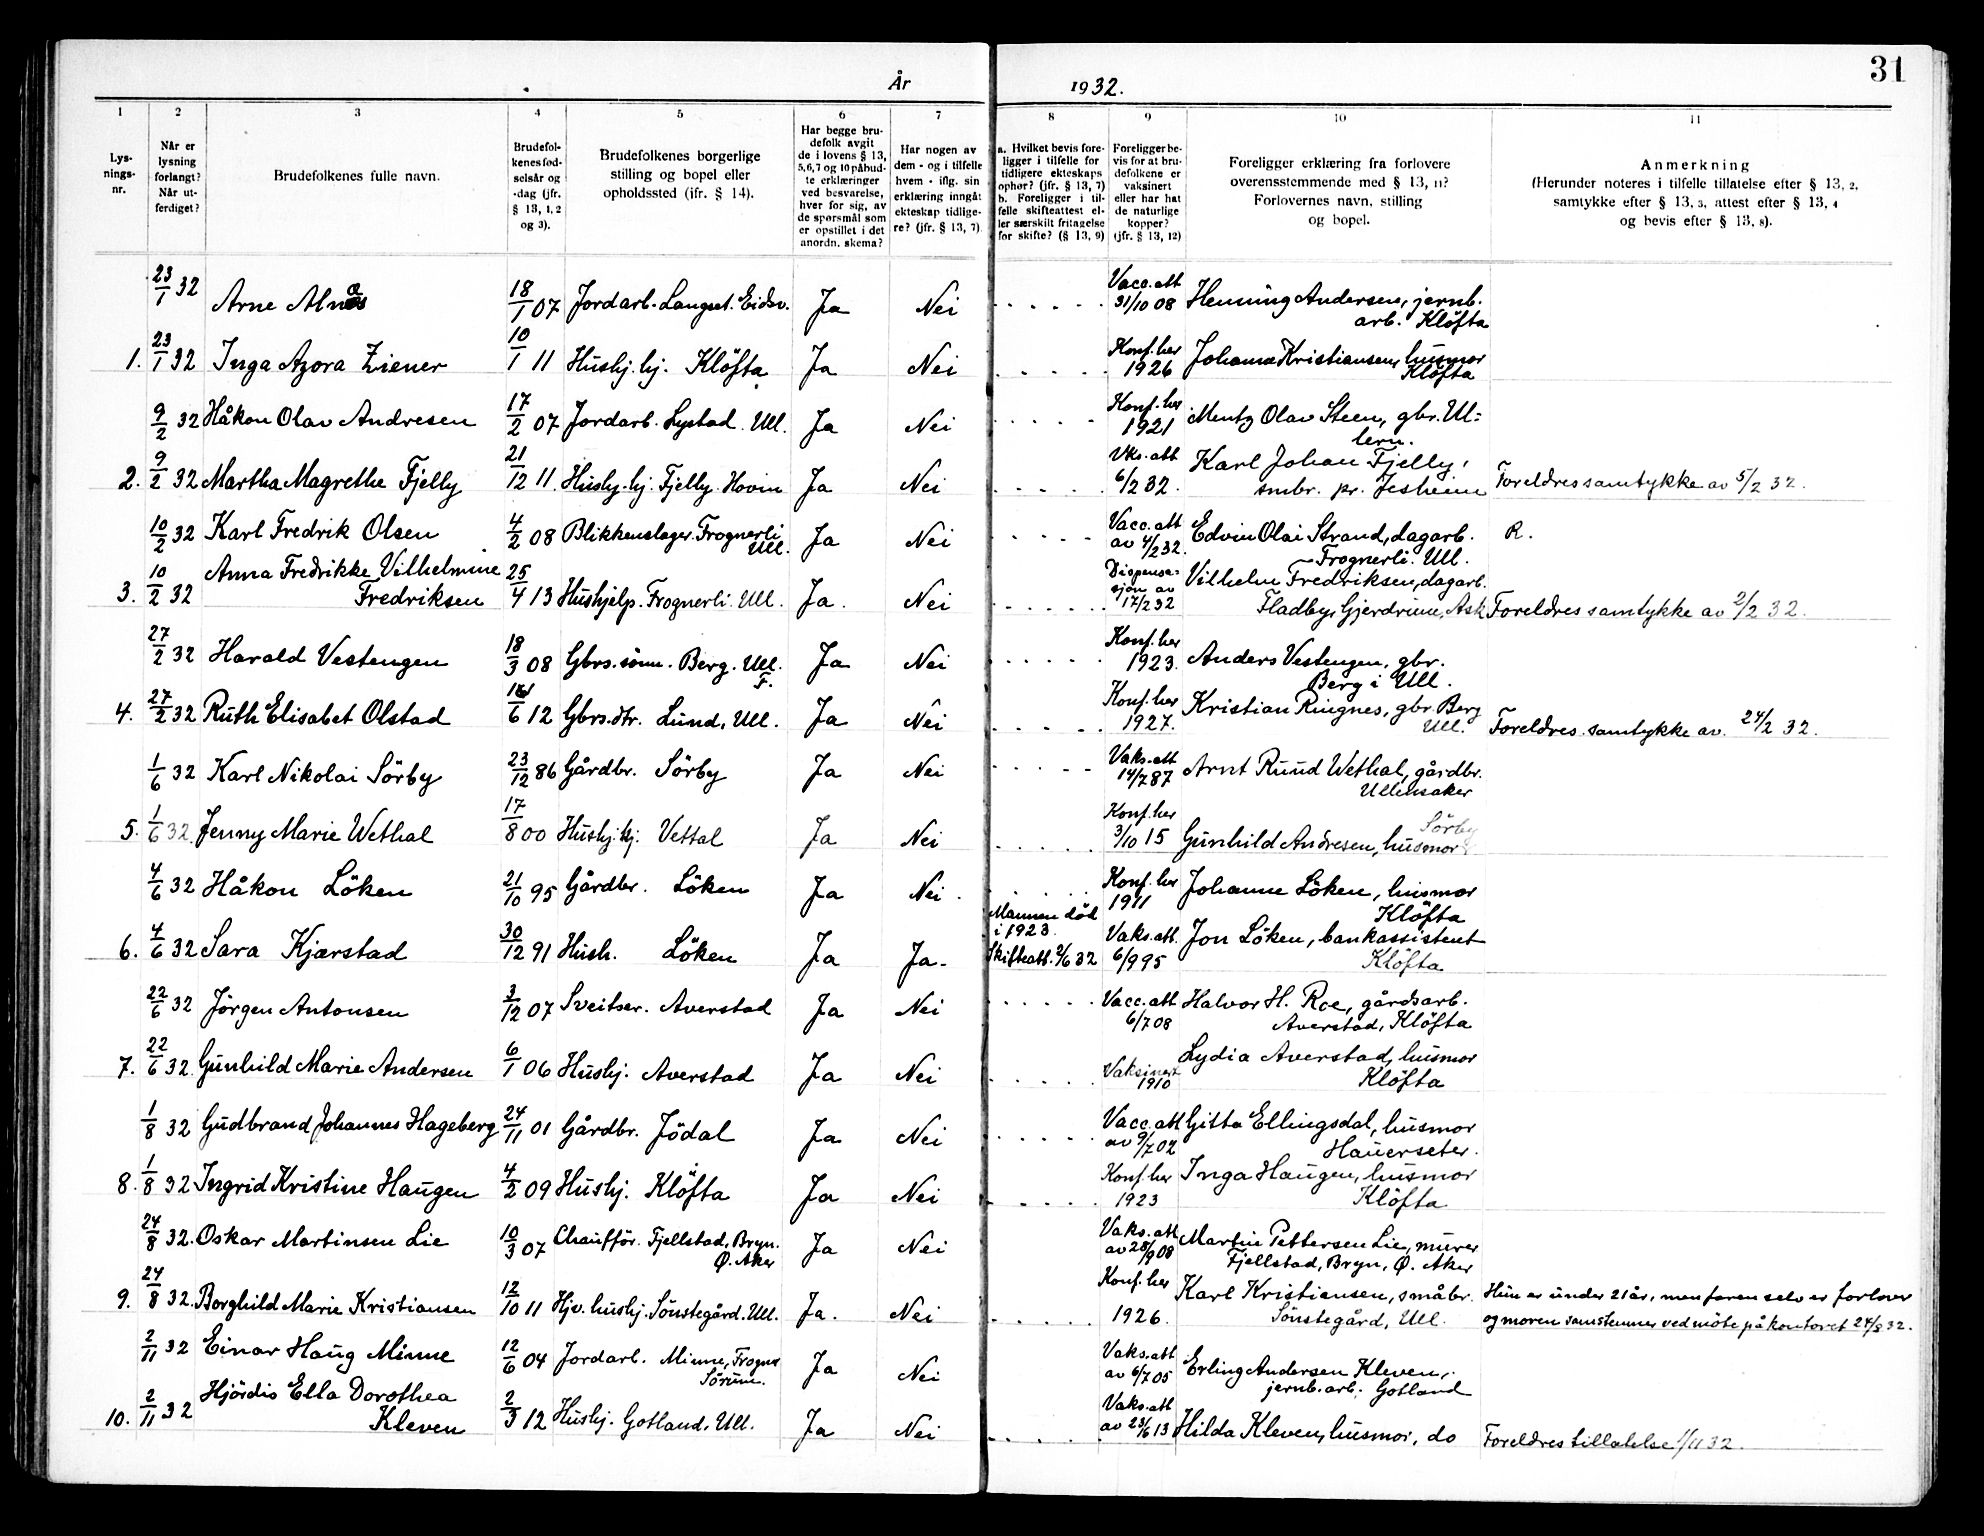 31
År 1932.
1 2 3 4 5 6 7 8 9 10 11
Lys-
nings-
nr.
Når er
lysning
forlangt?
Når ut-
ferdiget?
Brudefolkenes fulle navn.
Brudefol-
kenes fød-
selsår og
-dag (jfr.
§ 13, 1, 2
og 3).
Brudefolkenes borgerlige
stilling og bopel eller
opholdssted (ifr. § 14).
Har begge bru-
defolk avgit
de i lovens § 13,
5, 6, 7 og 10 påbud-
te erklæringer
ved besvarelse,
hver for sig, av
de spørsmål som
er opstillet i det
anordn. skema?
Har nogen av
dem - og i tilfelle
hvem - iflg. sin
erklæring inngåt
ekteskap tidlige-
re? (jfr. § 13, 7)
a. Hvilket bevis fore-
ligger i tilfelle for
tidligere ekteskaps
ophør? (jfr. § 13, 7)
b. Foreligger i til-
felle skifteattest el-
ler særskilt fritagelse
for skifte? (§ 13, 9)
Foreligger be-
vis for at bru-
defolkene er
vaksinert
eller har hat
de naturlige
kopper?
(jfr. § 13, 12)
Foreligger erklæring fra forlovere
overensstemmende med § 13, 11?
Forlovernes navn, stilling
og bopel.
Anmerkning
(Herunder noteres i tilfelle tillatelse efter § 13, 2,
samtykke efter § 13, 3, attest efter § 13, 4
og bevis efter § 13, 8).
23/1 32 Arne Alnæs 18/1 07 Jordarb. Langset. Eidsv. Ja Nei . . . . . Vacc. att 31/10 08 Henning Andersen, jernb. arb. Klöfta
1. 23/1 32 Inga Azora Ziener 10/1 11 Hushj. hj. Klöfta Ja Nei . . . . . Konf. her 1926 Johanne Kristiansen, husmor Klöfta
9/2 32 Håkon Olav Andresen 17/2 07 Jordarb. Lystad. Ull. Ja Nei . . . . . Konf. her 1921 Mentz Olav Steen, gbr. Ul- lern.
2. 9/2 32 Martha Magrethe Fjelly 21/12 11. Hushj. hj. Fjelly. Hovin Ja Nei . . . . . Vks. att 6/2 32. Karl Johan Fjelly, smbr. pr. Jesheim Foreldres samtykke av 5/2 32.
10/2 32 Karl Fredrik Olsen 4/2 08 Blikkenslager. Frognerli Ull. Ja Nei . . . . . Vacc. att av 4/2 32. Edvin Olai Strand, dagarb. Frognerli. Ull. R.
3. 10/2 32 Anna Fredrikke Vilhelmine Fredriksen 25/4 13 Hushjelp. Frognerli. Ull. Ja. Nei . . . . . Dispensa- sjon av 17/2 32 Vilhelm Fredriksen, dagarb. Fladby, Gjerdrum, Ask Foreldres samtykke av 2/2 32.
27/2 32 Harald Vestengen 18/3 08 Gbrs. sönn. Berg. Ull. F. Ja Nei . . . . . Konf. her 1923. Anders Vestengen, gbr. Berg i Ull.
4. 27/2 32 Ruth Elisabet Olstad /6 12 Gbrs. dtr. Lund, Ull. Ja Nei . . . . . Konf. her 1927. Kristian Ringnes, gbr. Berg Ull. Foreldres samtykke av. 24/2 32.
1/6 32 Karl Nikolai Sörby 23/12 86 Gårdbr. Sörby Ja Nei . . . . . Vaks. att 14/7 87 Arnt Ruud Wethal, gårdbr. Ullensaker
5. 1/6 32. Jenny Marie Wethal 17/8 00 Hushj. hj. Vettal Ja Nei . . . . . Konf. her 3/10 15 Gunhild Andresen, husmor Sörby
4/6 32 Håkon Löken 21/10 95 Gårdbr. Löken Ja Nei . . . . . Konf. her 1911 Johanne Löken, husmor Klöfta
6. 4/6 32 Sara Kjærstad 30/12 91 Hush. Löken Ja Ja. Mannen död i 1923. Skifteatt. 2/6 32 Vaks. att. 6/9 95 Jon Löken, bankassistent Klöfta
22/6 32 Jörgen Antonsen 3/12 07 Sveitser. Averstad Ja Nei . . . . . Vacc. att 6/7 08 Halvor H. Roe, gårdsarb. Averstad, Klöfta
7. 22/6 32. Gunhild Marie Andersen 6/1 06 Hushj. Averstad Ja Nei . . . . . Vaksinert 1910 Lydia Averstad, husmor Klöfta
1/8 32 Gudbrand Johannes Hageberg 24/11 01 Gårdbr. Jödal Ja Nei . . . . . Vacc. att av 9/7 02 Gitta Ellingsdal, husmor Hauerseter.
8. 1/8 32 Ingrid Kristine Haugen 4/2 09 Hushj. Klöfta Ja Nei . . . . . Konf. her 1923 Inga Haugen, husmor Klöfta
24/8 32. Oskar Martinsen Lie 10/3 07 Chaufför. Fjellstad, Bryn. Ø. Aker Ja Nei Vaks. att av 28/9 08 Martin Pettersen Lie, murer Fjellstad, Bryn, Ø. Aker
9. 24/8 32. Borghild Marie Kristiansen 12/10 11 Hjv. hushj. Sönstegård. Ull. Ja. Nei . . . . . Konf. her 1926. Karl Kristiansen, småbr. Sönstegård, Ull. Hun er under 21 år, men faren selv er forlover og moren samstemmer ved möte på kontoret 24/8 32.
2/11 32 Einar Haug Minne 12/6 04 Jordarb. Minne, Frogner Sörum. Ja Nei Vaks. att av 6/7 05 Erling Andersen Kleven, jernb. arb. Gotland
10. 2/11 32 Hjördis Ella Dorothea Kleven 2/3 12 Hushj. Gotland, Ull. Ja Nei . . . . . Vaks. att av 23/6 13 Hilda Kleven, husmor, do Foreldres tillatelse 1/11 32.